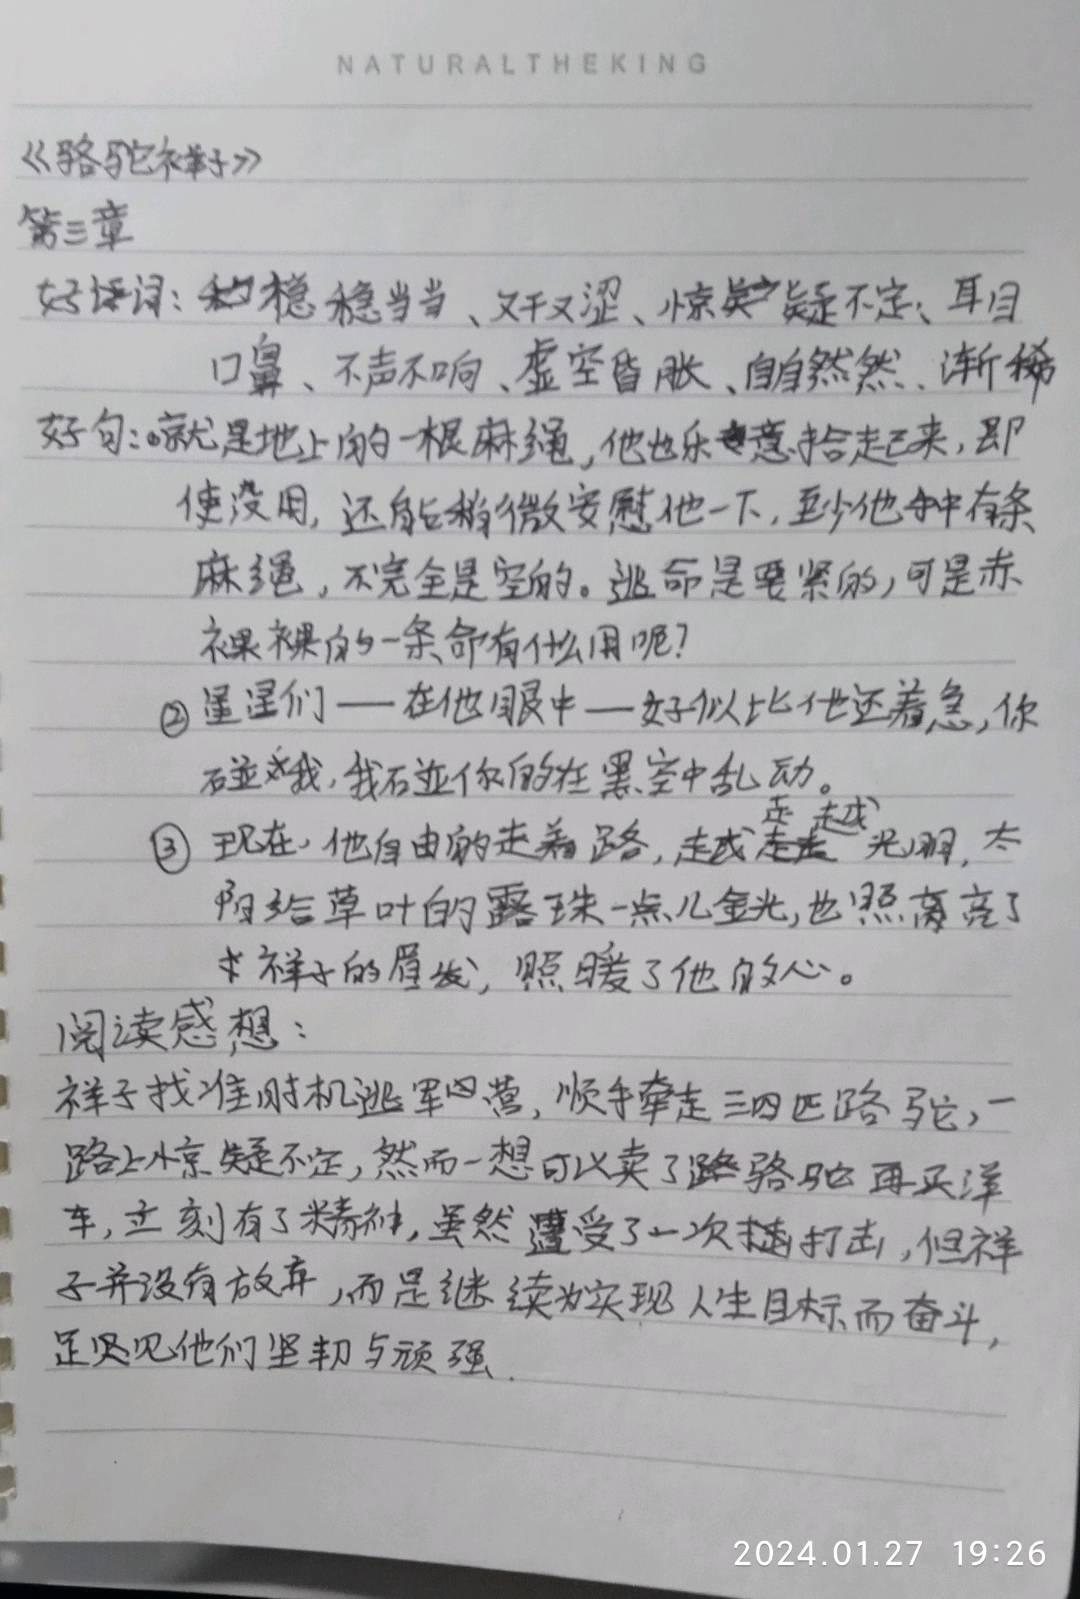 NATURALTHEKING
《骆驼祥子》
第三章
好语词：稳稳当当、又干又涩、惊疑不定、耳目
口鼻、不声不响、虚空昏胀、自自然然、渐稀
好句：①就是地上的一根麻绳，他也乐意拾起来，即
使没用，还能稍微安慰他一下，至少他手中有条
麻绳，不完全是空的。逃命是要紧的，可是赤
裸裸的一条命有什么用呢？
②星星们——在他眼中——好似比他还着急，你
碰我，我碰你的在黑空中乱动。
③现在，他自由的走着路，越走越光明，太
阳给草叶的露珠一点儿金光，也照亮了
祥子的眉发，照暖了他的心。
阅读感想：
祥子找准时机逃军营，顺手牵走三四匹骆驼，一
路上惊疑不定，然而一想可以卖了骆驼再买洋
车，立刻有了精神，虽然遭受了一次打击，但祥
子并没有放弃，而是继续为实现人生目标而奋斗，
足见他们坚韧与顽强.
2024.01.27 19:26